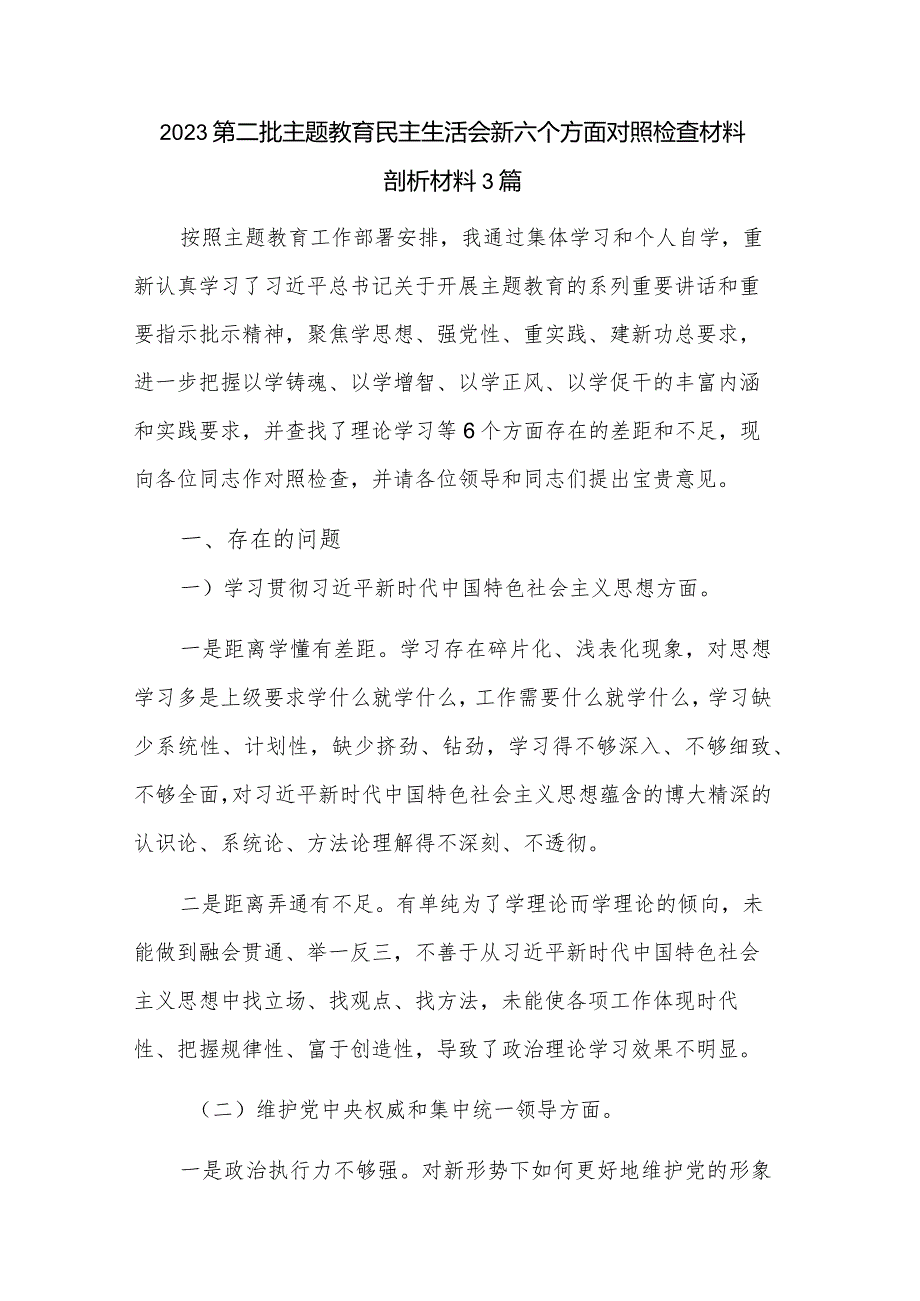 2023第二批主题教育民主生活会新六个方面对照检查材料
剖析材料3篇
按照主题教育工作部署安排，我通过集体学习和个人自学，重
新认真学习了习近平总书记关于开展主题教育的系列重要讲话和重
要指示批示精神，聚焦学思想、强党性、重实践、建新功总要求，
进一步把握以学铸魂、以学增智、以学正风、以学促干的丰富内涵
和实践要求，并查找了理论学习等6个方面存在的差距和不足，现
向各位同志作对照检查，并请各位领导和同志们提出宝贵意见。
一、存在的问题
一）学习贯彻习近平新时代中国特色社会主义思想方面。
一是距离学懂有差距。学习存在碎片化、浅表化现象，对思想
学习多是上级要求学什么就学什么，工作需要什么就学什么，学习缺
少系统性、计划性，缺少挤劲、钻劲，学习得不够深入、不够细致、
不够全面，对习近平新时代中国特色社会主义思想蕴含的博大精深的
认识论、系统论、方法论理解得不深刻、不透彻。
二是距离弄通有不足。有单纯为了学理论而学理论的倾向，未
能做到融会贯通、举一反三，不善于从习近平新时代中国特色社会
主义思想中找立场、找观点、找方法，未能使各项工作体现时代
性、把握规律性、富于创造性，导致了政治理论学习效果不明显。
（二）维护党中央权威和集中统一领导方面。
一是政治执行力不够强。对新形势下如何更好地维护党的形象